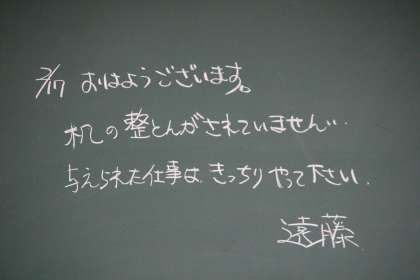 2/17 おはようございます。
机の整とんがされていません…
与えられた仕事は、きっちりやって下さい.
遠藤